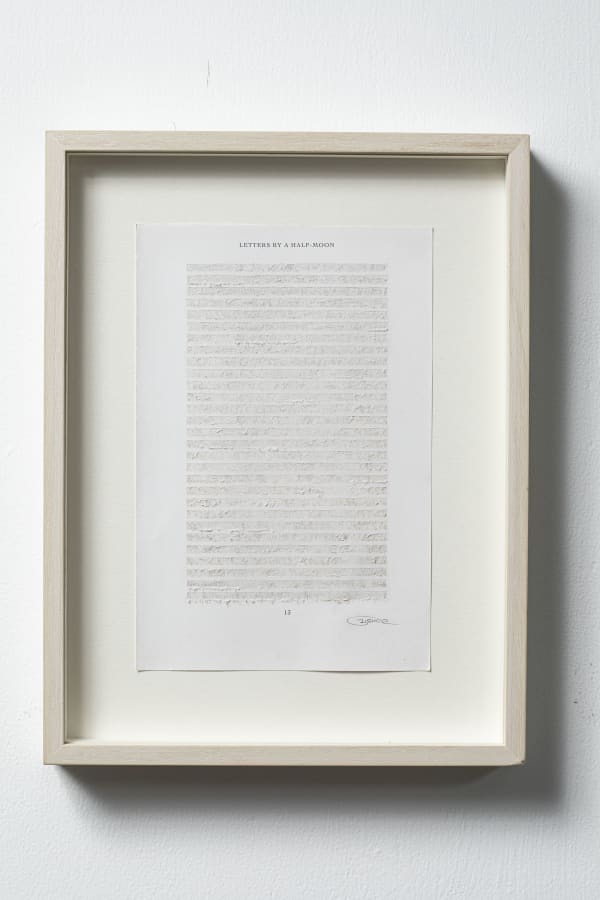 LETTERS BY A HALF-MOON
13